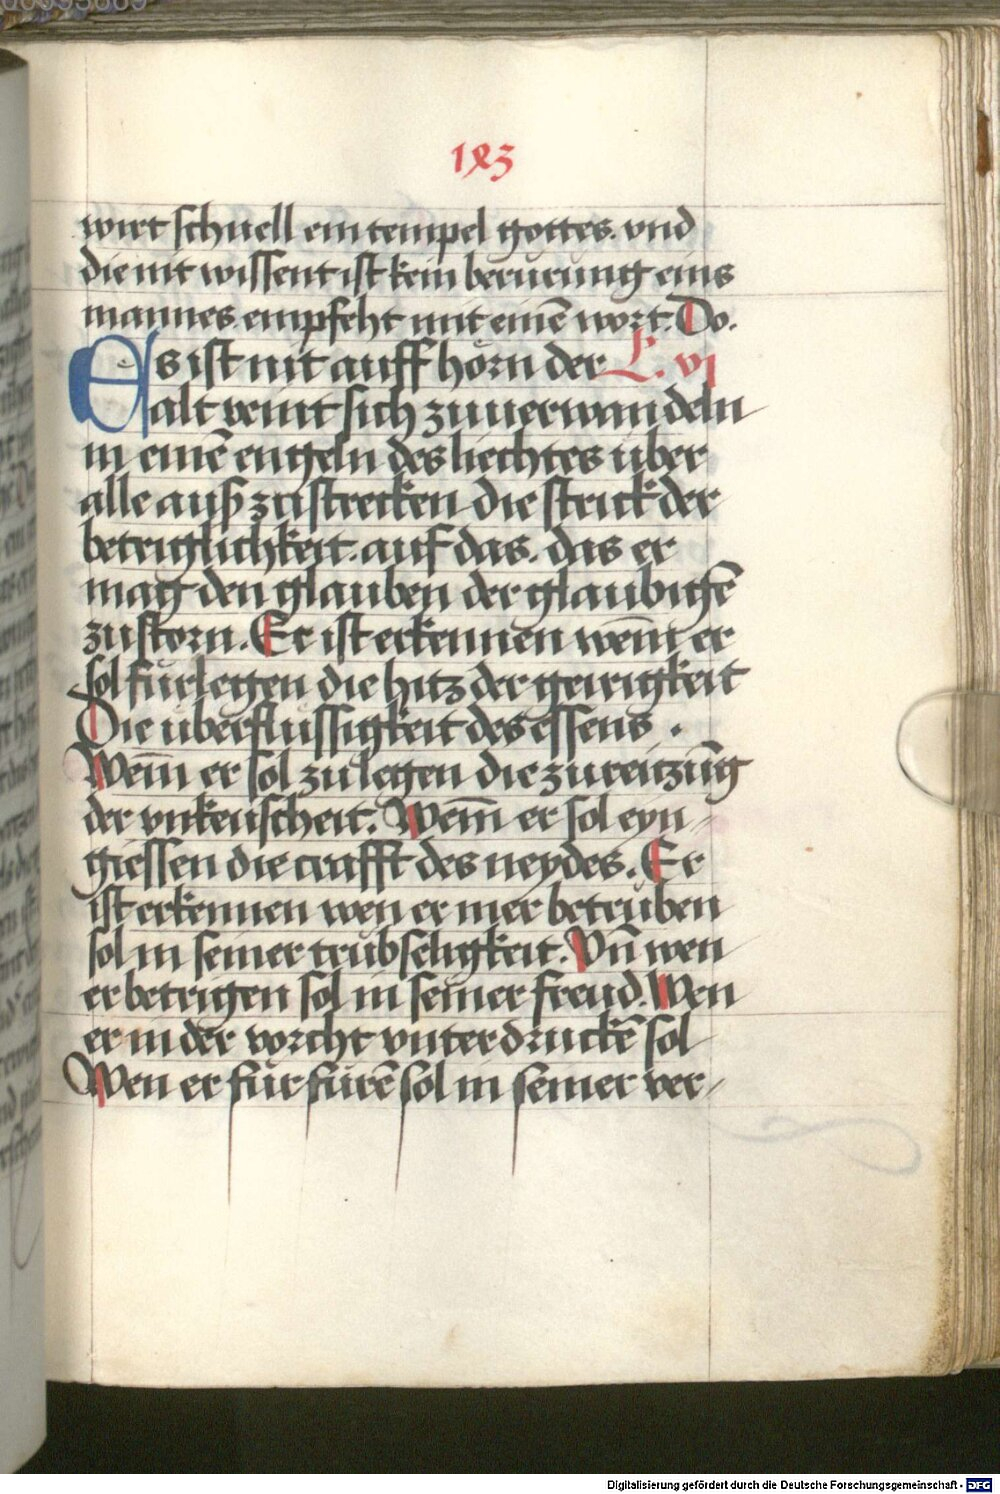 183
wirt schnell ein tempel gottes. vnd
die nit wissent ist kein berurung eins
mannes. empfeht mit einē wort. Do.
Es ist nit auff hörn der L. vi
alt veint sich zuuerwandeln
in einē engeln des liechtes über
alle auß zustrecken die strick der
betriglichkeit. auf das. das er
mag den glauben der glaubigē
zustorn. Er ist erkennen wem̄ er
sol fürlegen die hitz der geirigkeit
Die uberflussigkeit des essens.
Wem̄ er sol zulegen die zureitzūg
der vnkeuscheit. Wem̄ er sol eyn
giessen die crafft des neydes. Er
ist erkennen wen er mer betrüben
sol in seiner trübseligkeit. Vn̄ wen
er betrigen sol in seiner freud. Wen
er in der vorcht vnterdruckē sol
Wen er für fürē sol in seiner ver
Digitalisierung gefördert durch die Deutsche Forschungsgemeinschaft - DFG